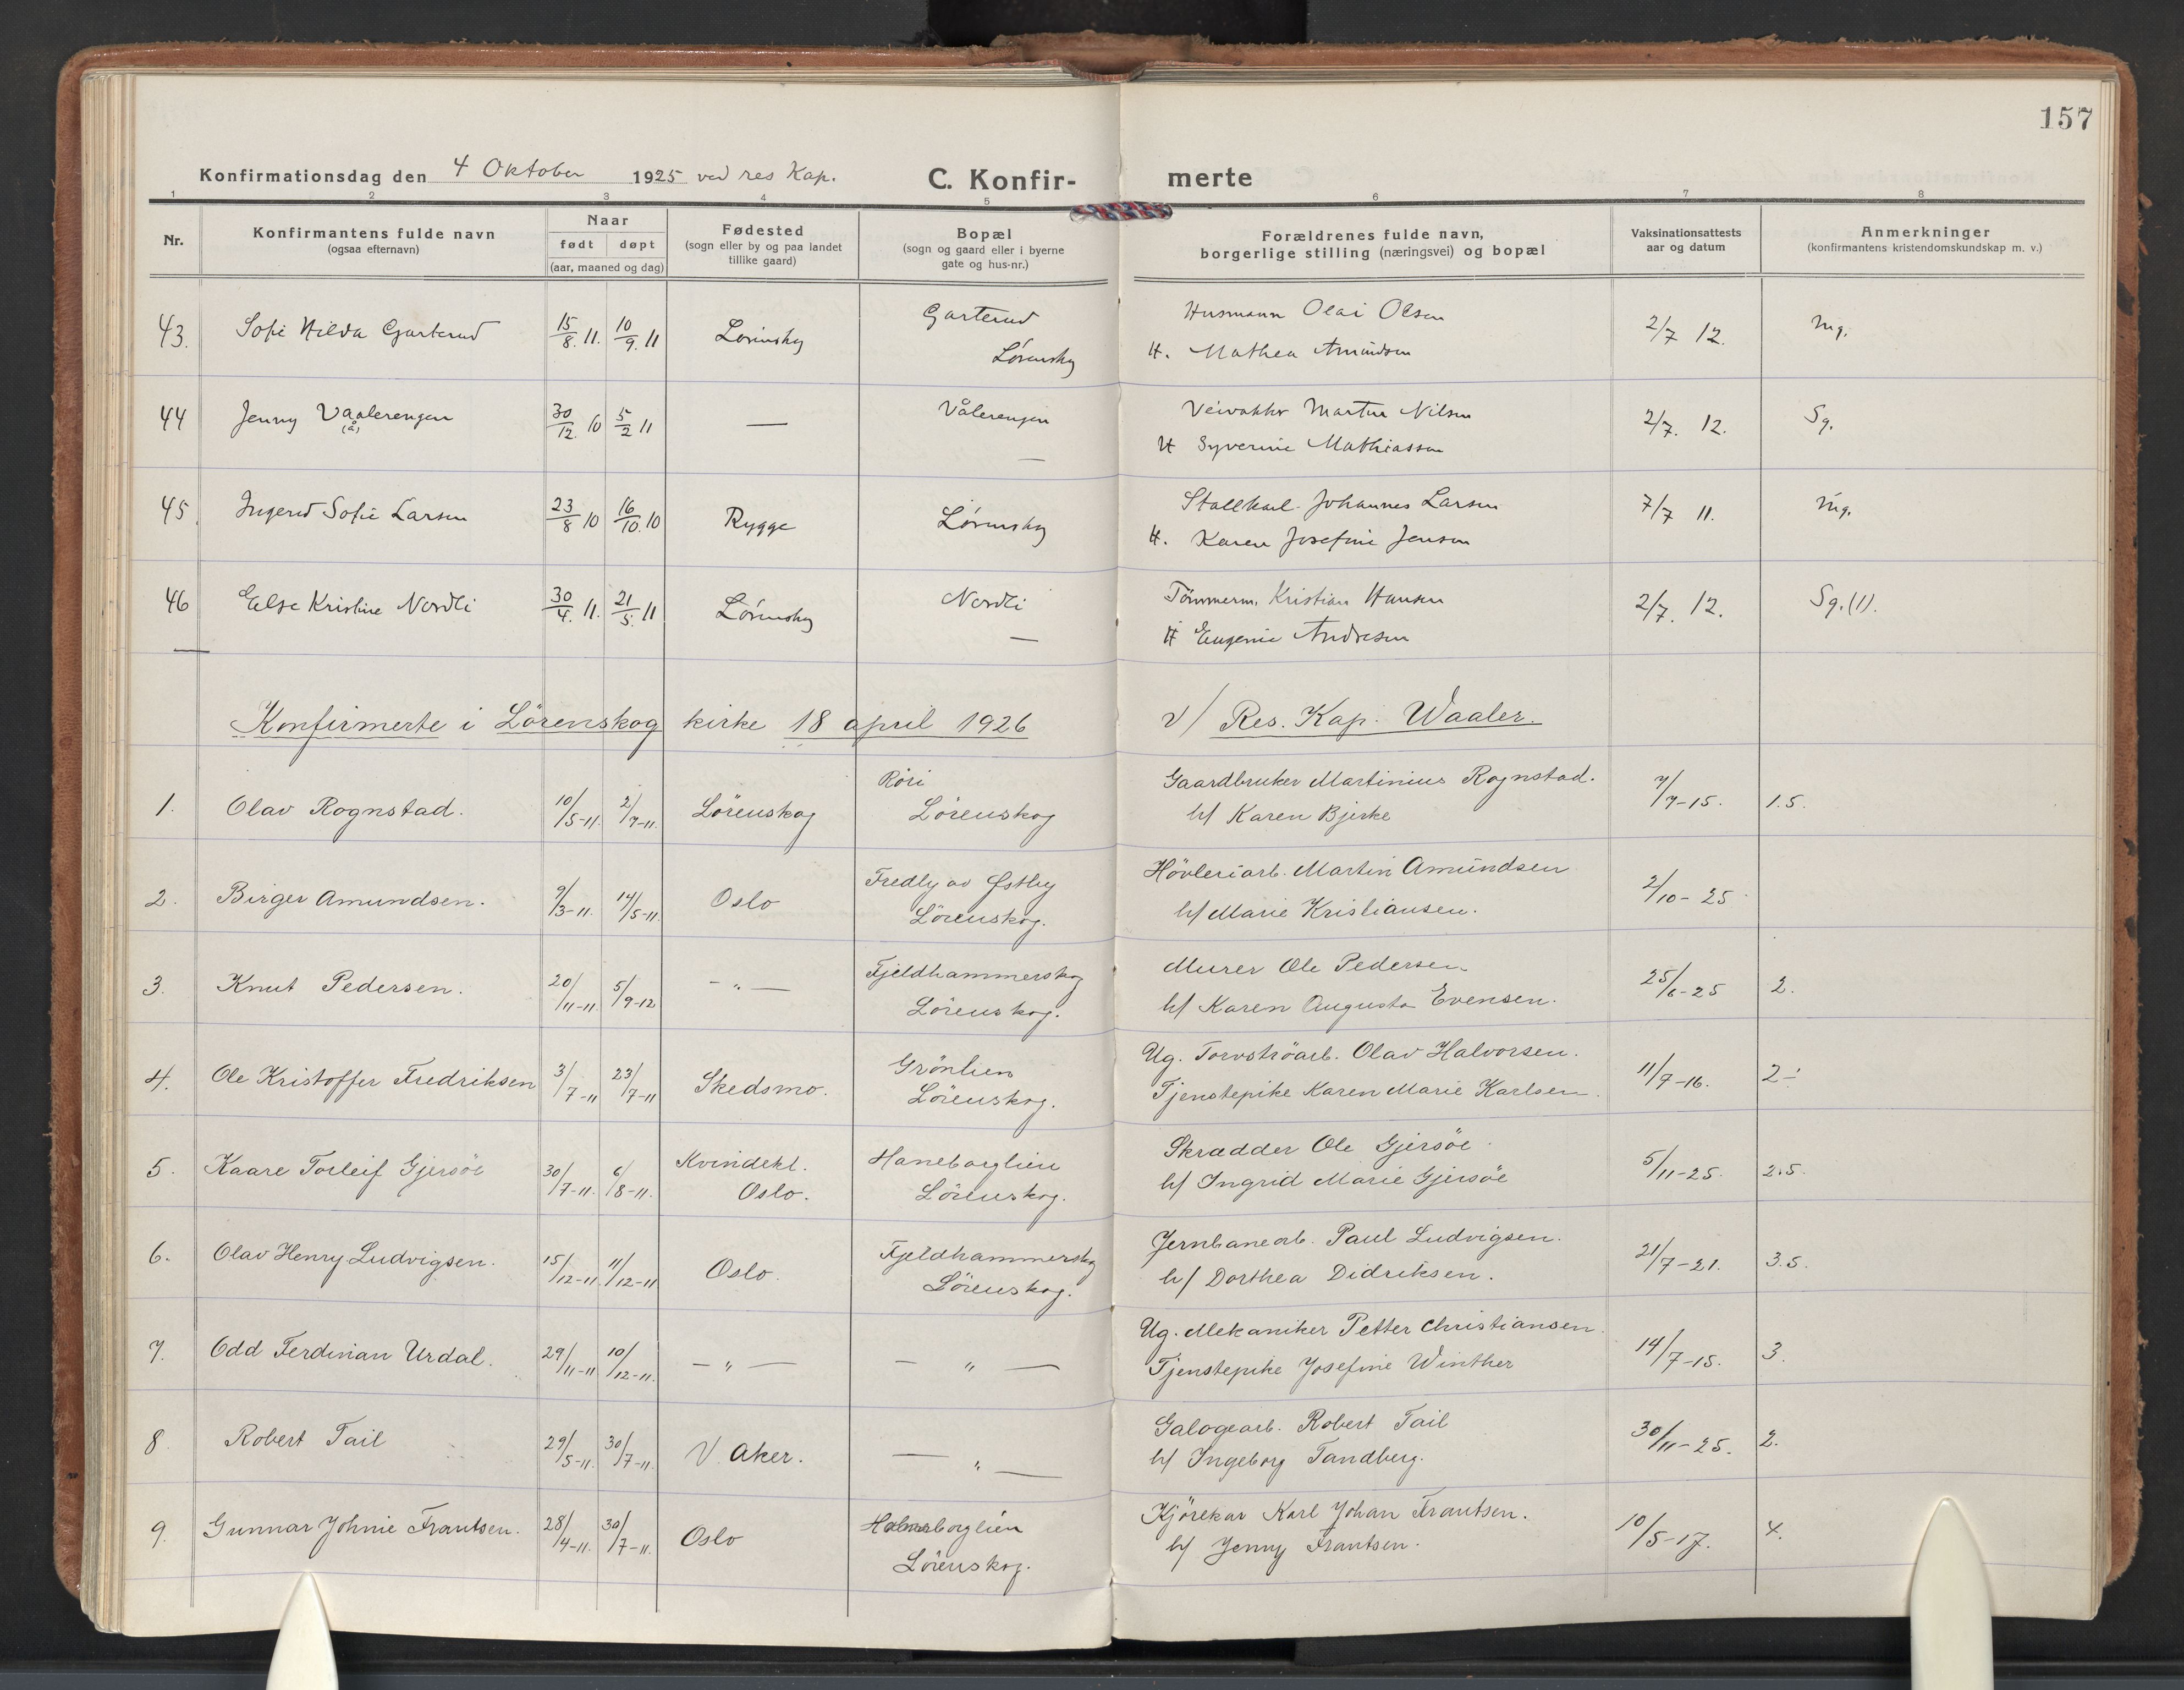 157
Konfirmationsdag den 4 Oktober 1925 ved res Kap. C. Konfir- merte
1 2 3 4 5 6 7 8
Nr. Konfirmantens fulde navn (ogsaa efternavn) Naar født døpt (aar, maaned og dag) Fødested (sogn eller by og paa landet tillike gaard) Bopæl (sogn og gaard eller i byerne gate og hus-nr.) Forældrenes fulde navn, borgerlige stilling (næringsvei) og bopæl Vaksinationsattests aar og datum Anmerkninger (konfirmantens kristendomskundskap m. v.)
43. Sofie Hilda Garterud 15/8. 11. 10/9. 11 Lørenskog Garterud Husmann Olai Olsen 2/7 12. Mg.
Lørenskog H. Mathea Amundsen
44 Jenny Vaalerengen (å) 30/12. 10 5/2 11 — Vålerengen Veivokter Martin Nilsen 2/7. 12. Sg.
— H Syverine Mathiassen
45 Ingerid Sofie Larsen 23/8 10 16/10. 10 Rygge Lørenskog Stallkarl Johannes Larsen 7/7 11. Mg.
H. Karen Josefine Jensen
46 Else Kristine Nordli 30/4. 11. 21/5. 11 Lørenskog Nordli Tømmerm. Kristian Hansen 2/7. 12. Sg. (1).
— H Eugenie Andresen
Konfirmerte i Lörenskog kirke 18 april 1926 v/ Res. Kap. Waaler.
1. Olav Rognstad. 10/5-11. 2/7-11. Lörenskog Röri Gaardbruker Martinius Rognstad. 7/7-15. 1.5.
Lörenskog h/ Karen Bjerke
2. Birger Amundsen. 9/3-11. 14/5-11. Oslo Fredly av Østby Hövleriarb. Martin Amundsen 2/10-25
Lörenskog. h/ Marie Kristiansen.
3. Knut Pedersen. 20/11-11 5/9-12 - " — Fjeldhammerskog Murer Ole Pedersen 25/6-25 2.
Lörenskog. h/ Karen Augusta Evensen.
4. Ole Kristoffer Fredriksen 3/7-11 23/7-11 Skedsmo. Grönlien Ug. Torvströarb. Olav Halvorsen. 11/7-16. 2÷
Lörenskog. Tjenstepike Karen Marie Karlsen.
5. Kaare Torleif Gjersöe 30/7-11. 6/8-11. Kvindekl. Haneborglien Skrædder Ole Gjersöe 5/11-25. 2.5.
Oslo. Lörenskog. h/ Ingrid Marie Gjersöe
6. Olav Henry Ludvigsen. 15/12-11 11/12-11 Oslo. Fjeldhammerskog Jernbanearb. Paul Ludvigsen. 21/7-21. 3.5.
Lörenskog. h/ Dorthea Didriksen.
7. Odd Ferdinan Urdal. 29/11-11 10/12-11. — " — — " — Ug. Mekaniker Petter Christiansen. 14/7-15. 3.
Tjenstepike Josefine Winther
8 Robert Tail 29/5-11. 30/7-11. V. Aker. — " — Galogearb. Robert Tail 30/11-25. 2.
h/ Ingeborg Tandberg.
9. Gunnar Johnie Frantsen. 28/4-11. 30/7-11. Oslo Kjörekar Karl Johan Frantsen. 10/5-17. 4.
Lörenskog. h/ Jenny Frantsen.